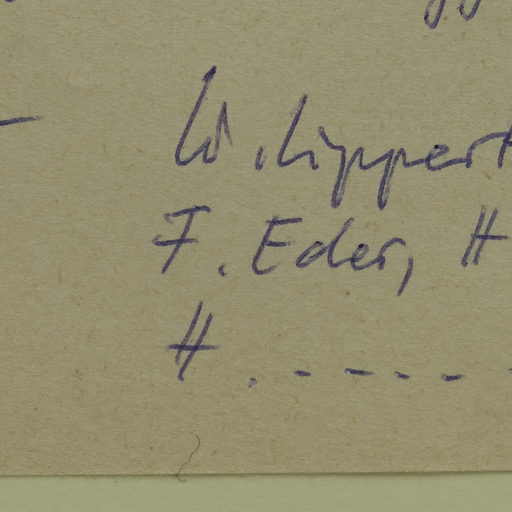 W. Lippert
F. Eder, H
H. - - - - -